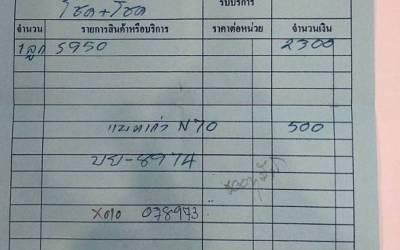 รับบริการ
โชค+โชค
จำนวน รายการสินค้าหรือบริการ ราคาต่อหน่วย จำนวนเงิน
1 ลูก S950 2300
แบตเก่า N70 500
บย-8974
078973